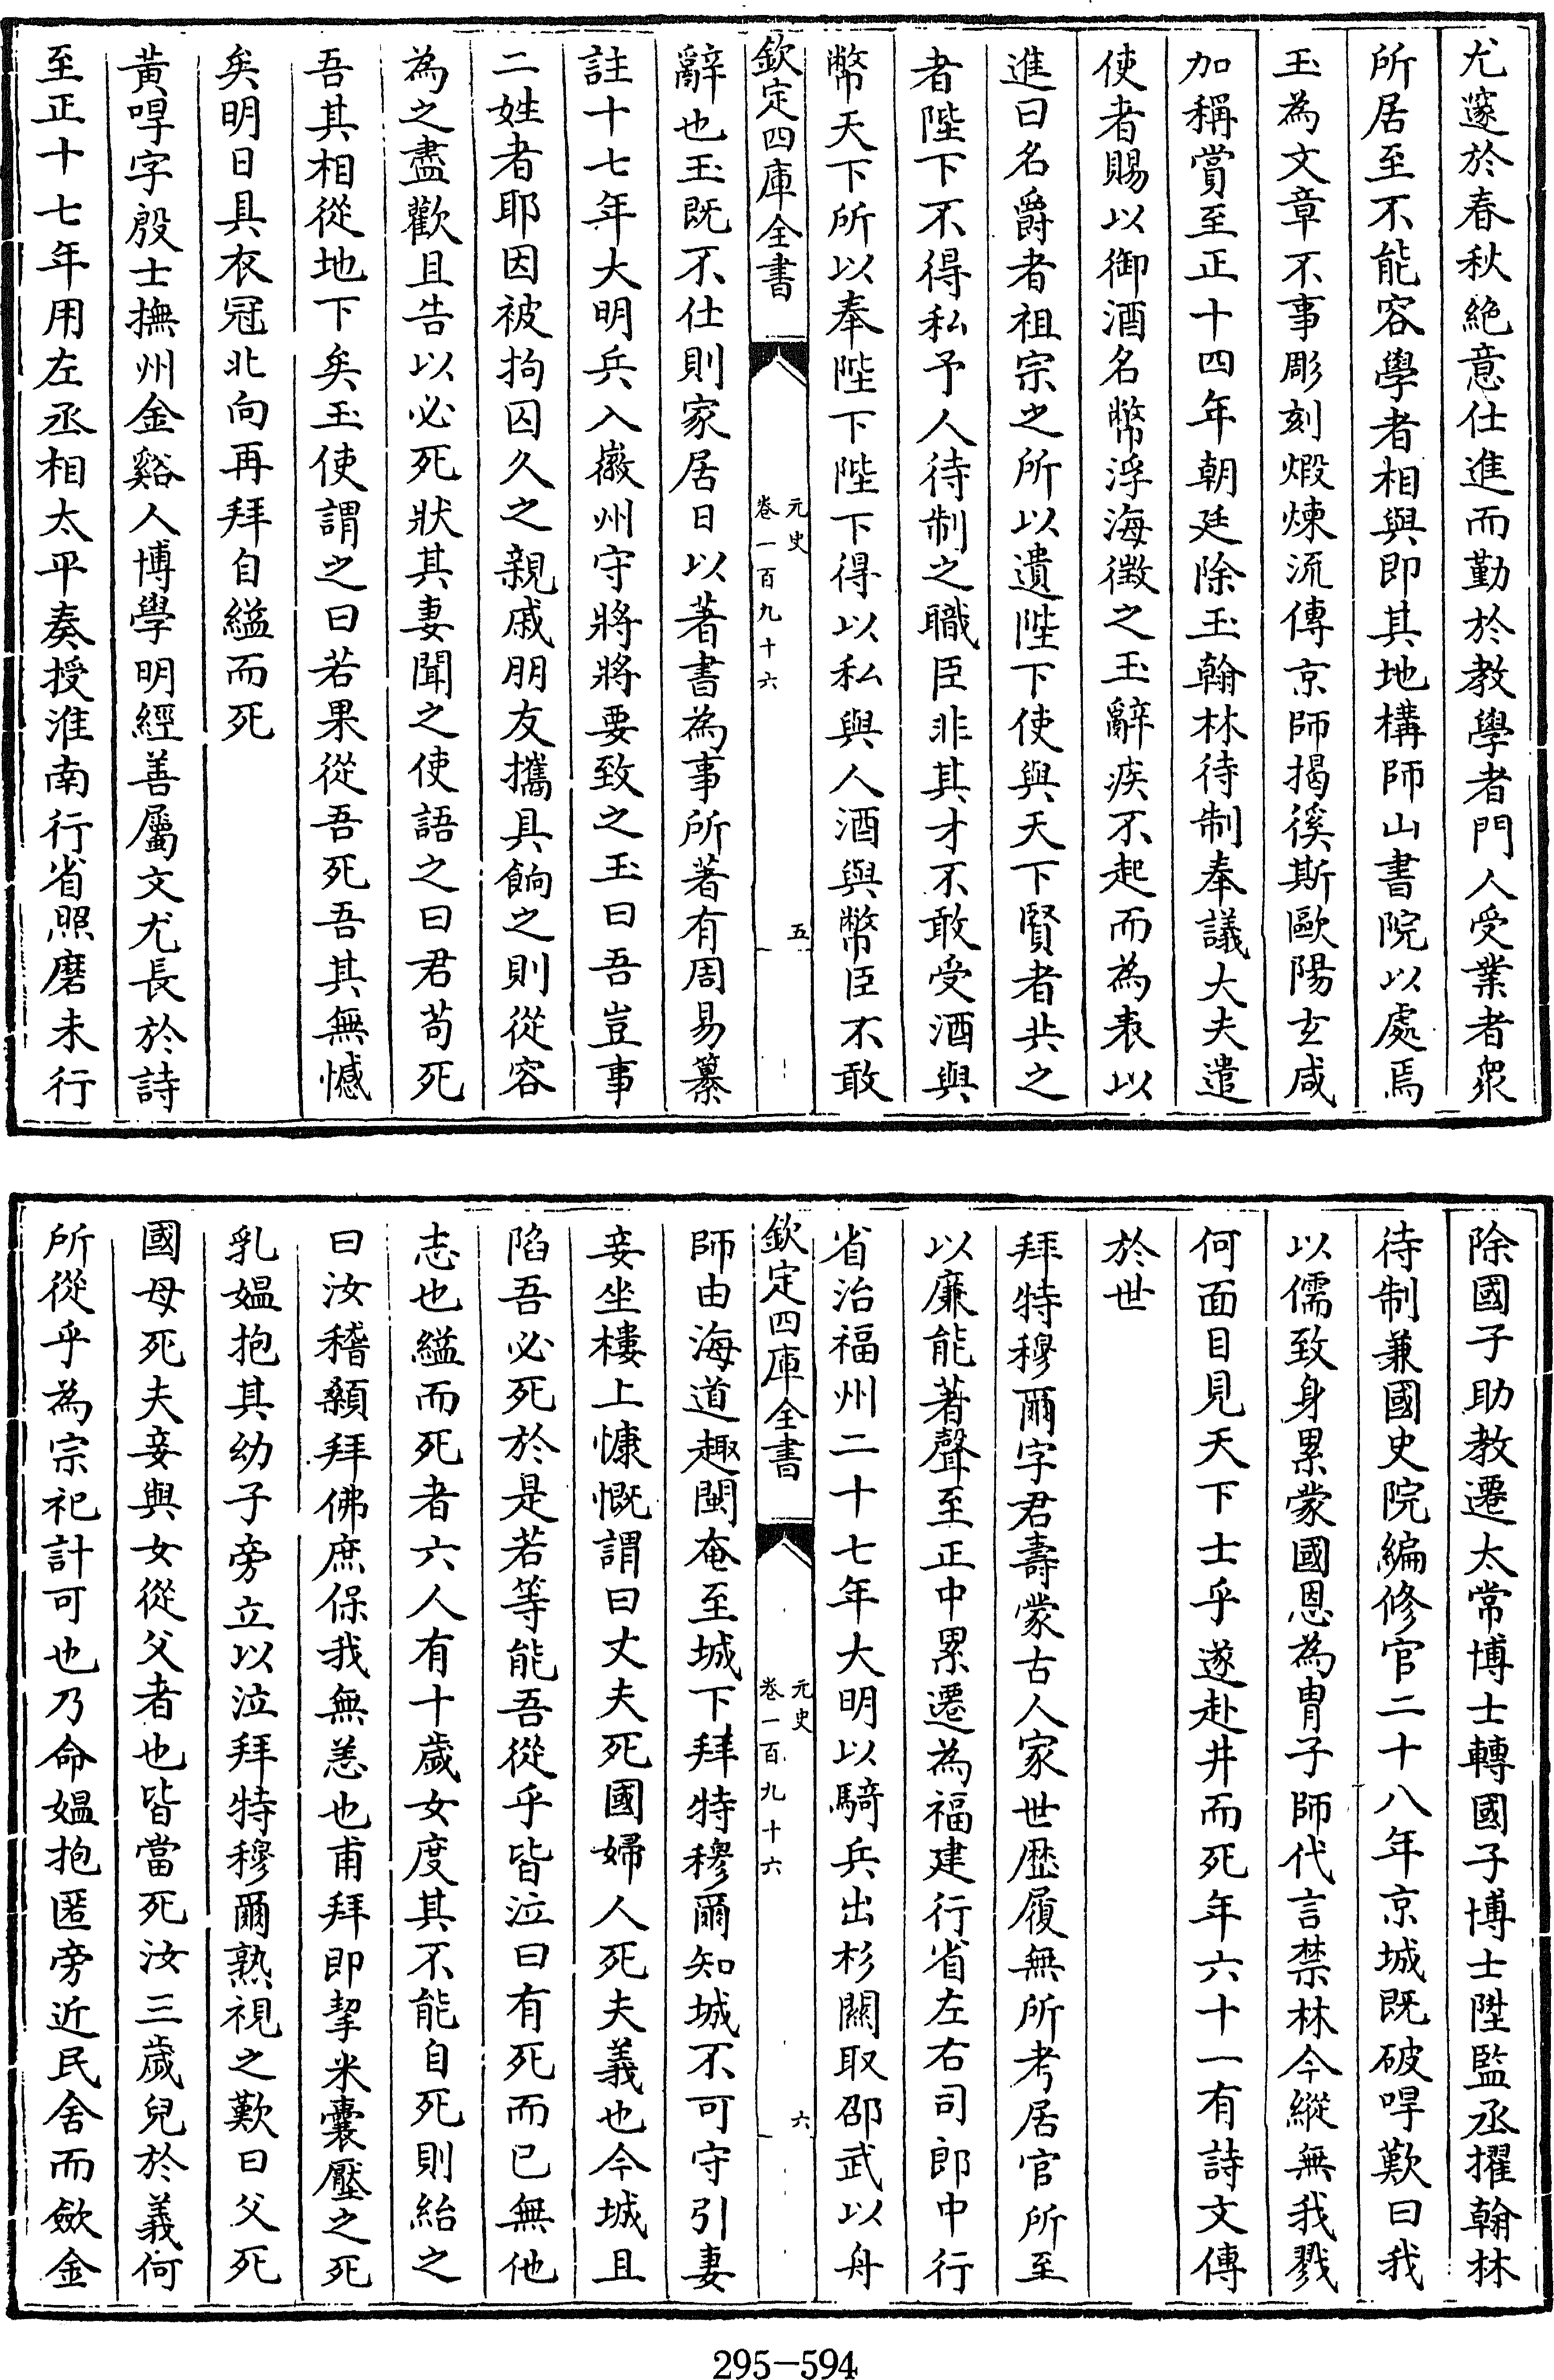 尤邃於春秋絶意仕進而勤於教學者門人受業者衆
所居至不能容學者相與即其地構師山書院以處焉
玉為文章不事彫刻煅煉流傳京師揭徯斯歐陽玄咸
加稱賞至正十四年朝廷除玉翰林待制奉議大夫遣
使者賜以御酒名幣浮海徴之玉辭疾不起而為表以
進曰名爵者祖宗之所以遺陛下使與天下賢者共之
者陛下不得私予人待制之職臣非其才不敢受酒與
幣天下所以奉陛下陛下得以私與人酒與幣臣不敢
欽定四庫全書
元史
卷一百九十六
五
辭也玉既不仕則家居日以著書為事所著有周易纂
註十七年大明兵入徽州守將將要致之玉曰吾豈事
二姓者耶因被拘囚久之親戚朋友攜具餉之則從容
為之盡歡且告以必死狀其妻聞之使語之曰君茍死
吾其相從地下矣玉使謂之曰若果從吾死吾其無憾
矣明日具衣冠北向再拜自縊而死
黃㖊字殷士撫州金谿人博學明經善屬文尤長於詩
至正十七年用左丞相太平奏授淮南行省照磨未行
除國子助教遷太常博士轉國子博士陞監丞擢翰林
待制兼國史院編修官二十八年京城既破㖊歎曰我
以儒致身累蒙國恩為胄子師代言禁林今縱無我戮
何面目見天下士乎遂赴井而死年六十一有詩文傳
於世
拜特穆爾字君壽蒙古人家世歴履無所考居官所至
以廉能著聲至正中累遷為福建行省左右司郎中行
省治福州二十七年大明以騎兵出杉關取邵武以舟
欽定四庫全書
元史
卷一百九十六
六
師由海道趣閩奄至城下拜特穆爾知城不可守引妻
妾坐樓上慷慨謂曰丈夫死國婦人死夫義也今城且
陷吾必死於是若等能吾從乎皆泣曰有死而已無他
志也縊而死者六人有十歲女度其不能自死則紿之
曰汝稽顙拜佛庶保我無恙也甫拜即挈米囊壓之死
乳媼抱其幼子旁立以泣拜特穆爾熟視之歎曰父死
國母死夫妾與女從父者也皆當死汝三歲兒於義何
所從乎為宗祀計可也乃命媼抱匿旁近民舍而斂金
295-594